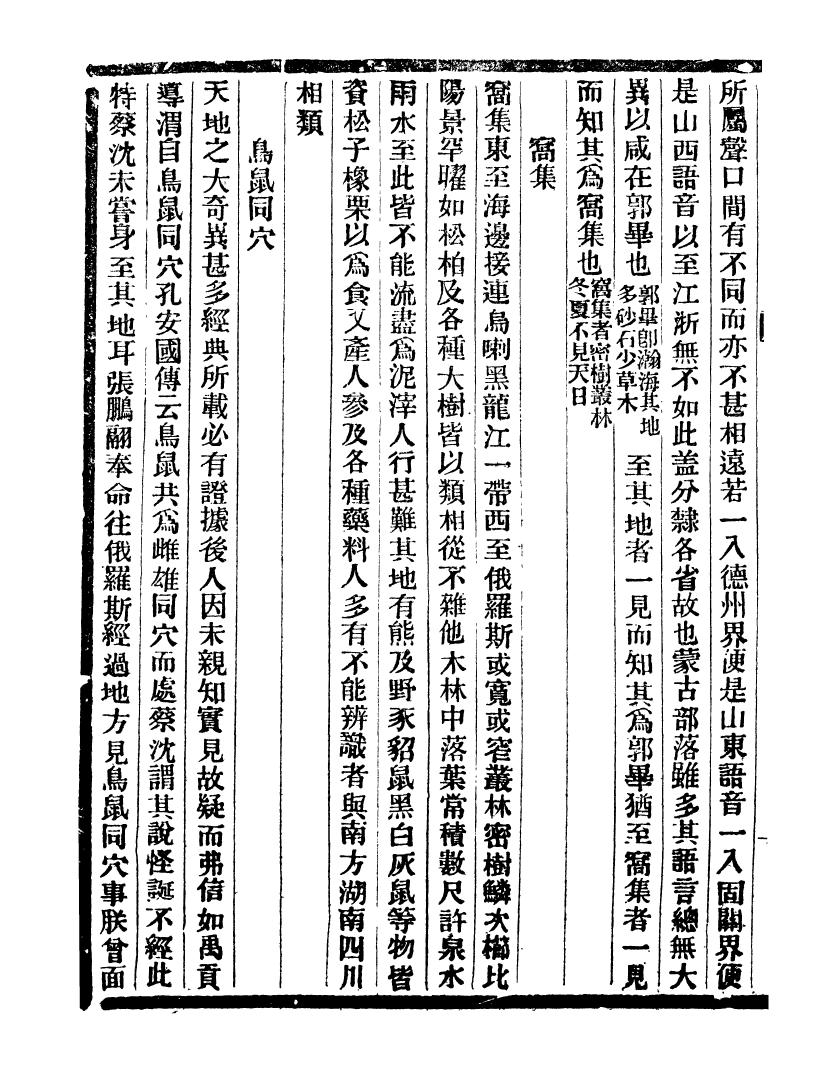 所屬聲口間有不同而亦不甚相遠若一入德州界便是山東語音一入固關界便
是山西語音以至江浙無不如此盖分隸各省故也蒙古部落雖多其語言總無大
異以咸在郭畢也郭畢卽瀚海其地
多砂石少草木至其地者一見而知其爲郭畢猶至窩集者一見
而知其爲窩集也窩集者密樹叢林
冬夏不見天日
窩集
窩集東至海邊接連烏喇黑龍江一帶西至俄羅斯或寬或窄叢林密樹鱗次櫛比
陽景罕曜如松柏及各種大樹皆以類相從不雜他木林中落葉常積數尺許泉水
雨水至此皆不能流盡爲泥滓人行甚難其地有熊及野豕貂鼠黑白灰鼠等物皆
資松子橡栗以爲食又產人參及各種藥料人多有不能辨識者與南方湖南四川
相類
鳥鼠同穴
天地之大奇異甚多經典所載必有證據後人因未親知實見故疑而弗信如禹貢
導渭自鳥鼠同穴孔安國傳云鳥鼠共爲雌雄同穴而處蔡沈謂其說怪誕不經此
特蔡沈未嘗身至其地耳張鵬翮奉命往俄羅斯經過地方見鳥鼠同穴事朕曾面